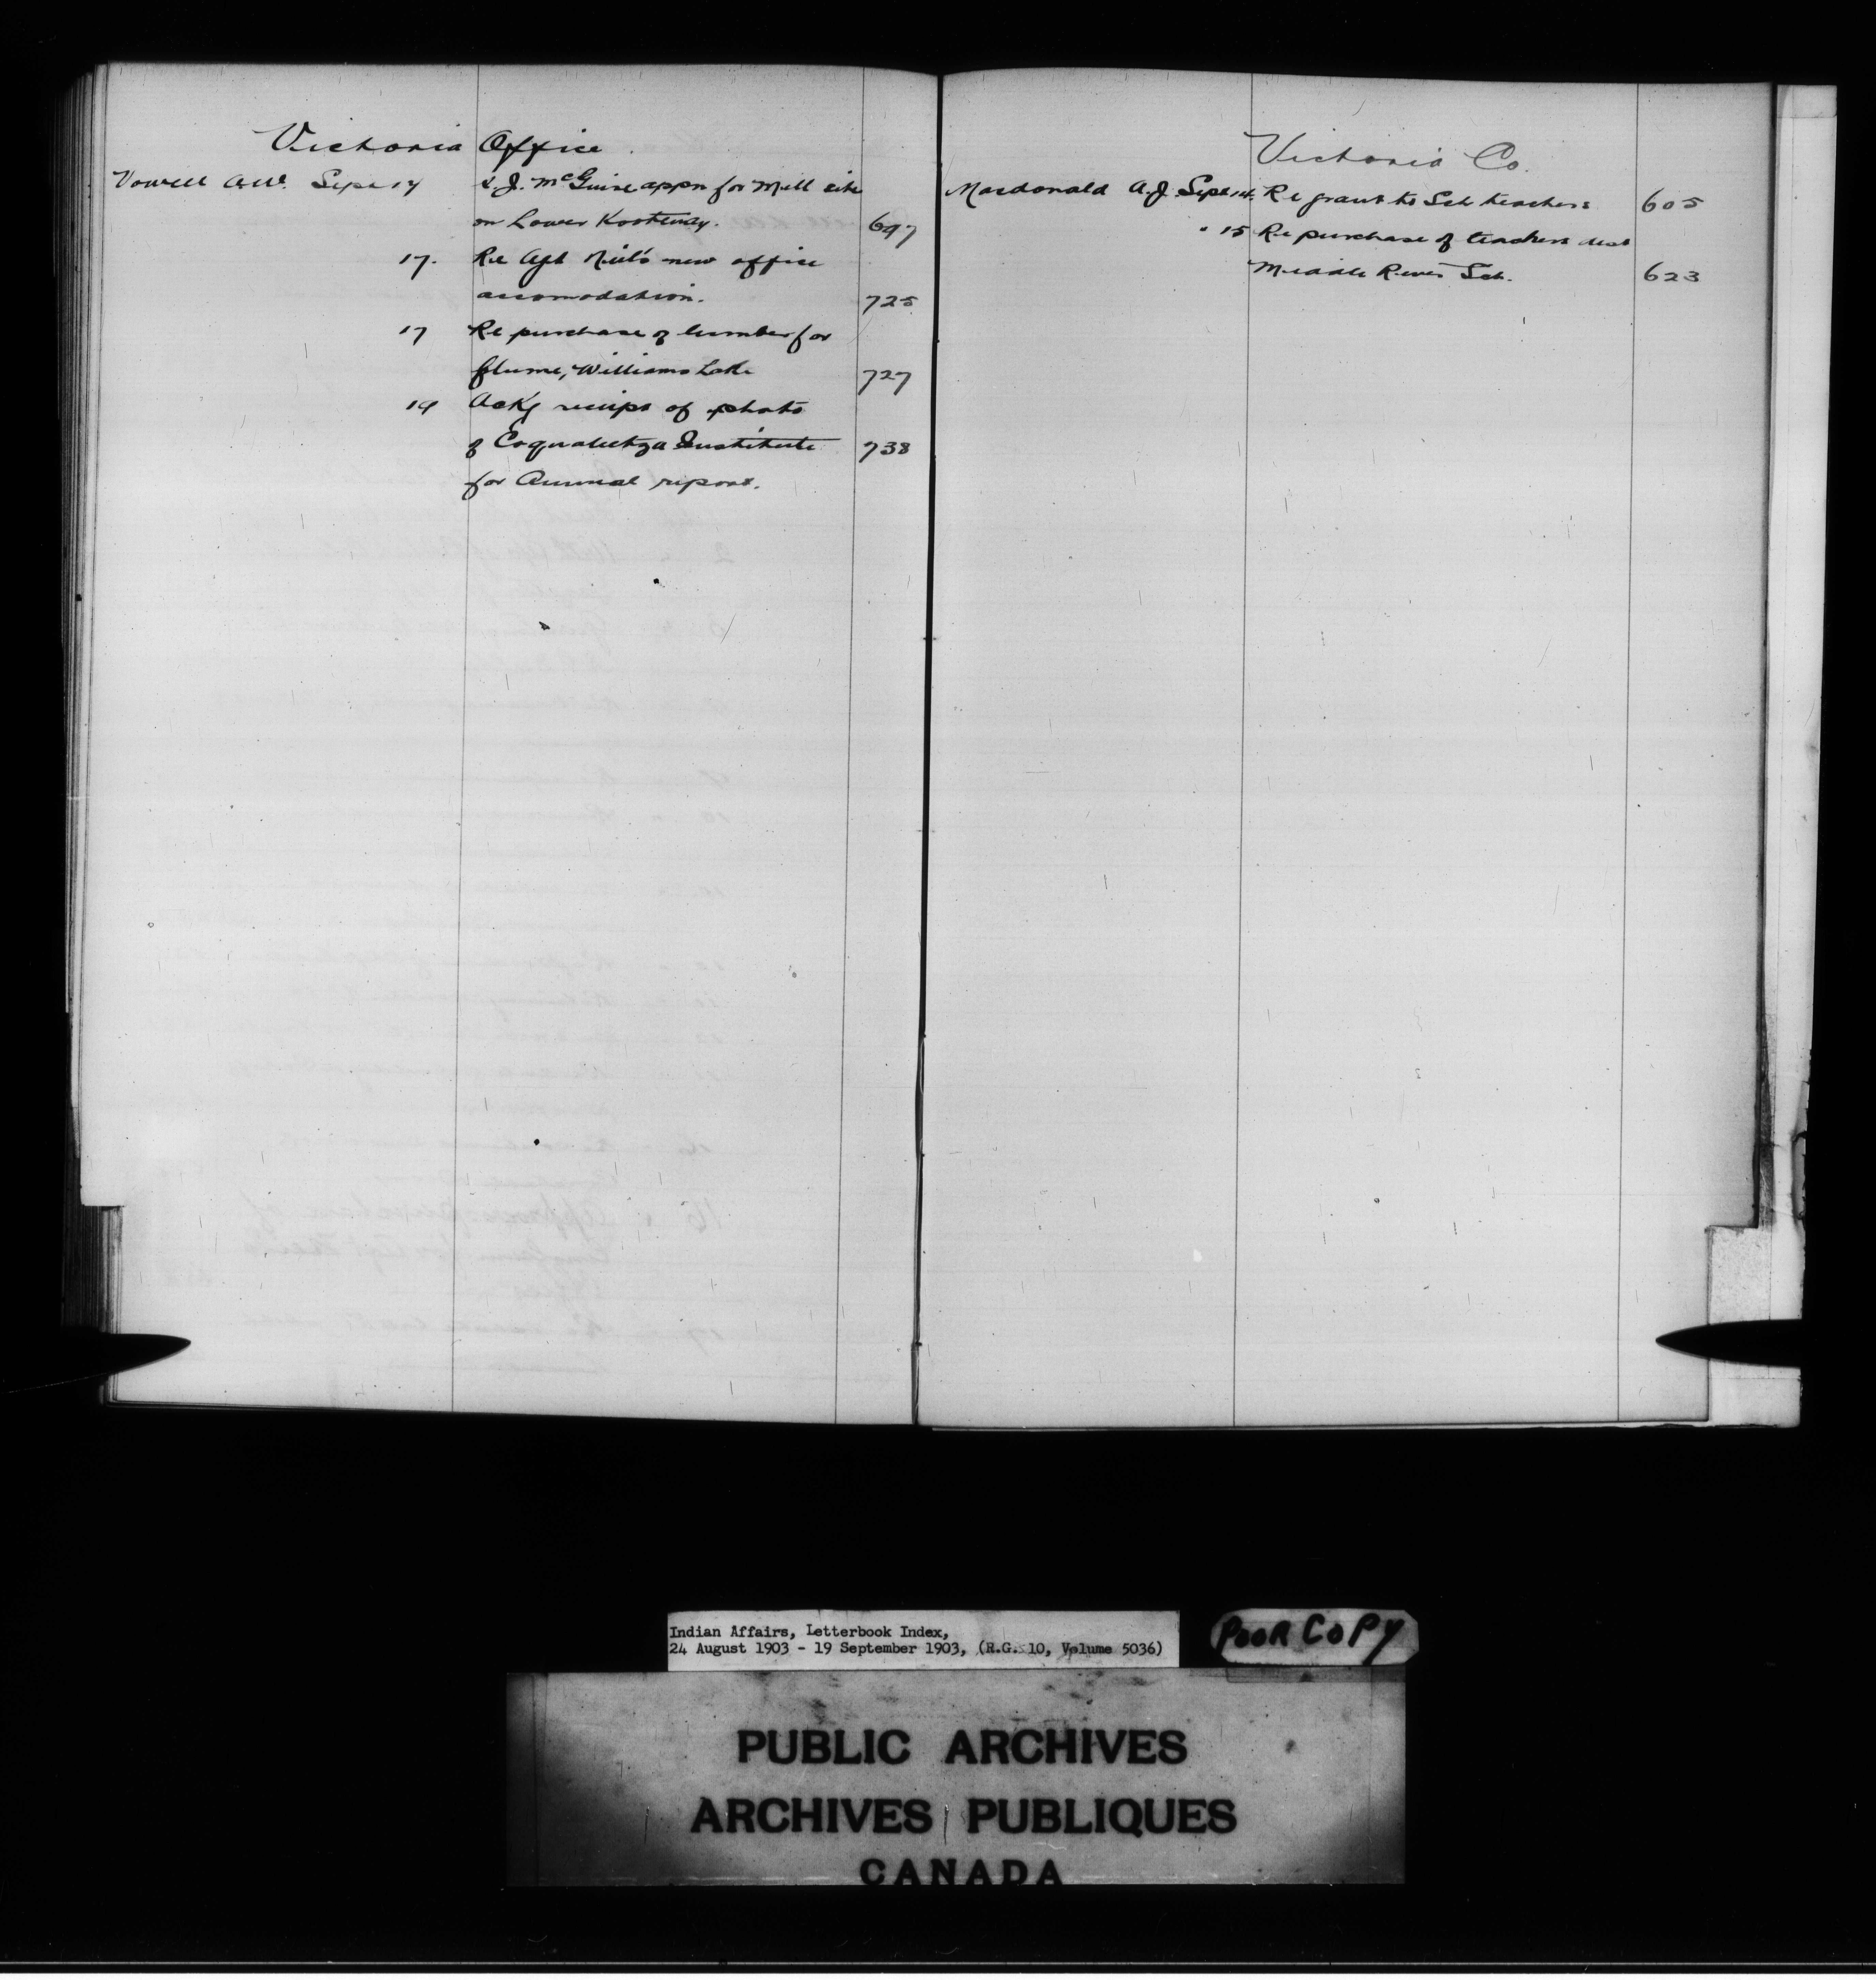 Victoria Office
Vowell A.W. Sept 14 J. McGuire appn for Mill site
on Lower Kootenay. 697
17. Re Agt Neil's new office
accomodation. 725
17 Re purchase of lumber for
flume, Williams Lake 727
19 Ackg receipt of photo
of Coqualeetza Institute 738
for Annual report.
Victoria Co.
Macdonald A.J. Sept 14. Re grant to Sch teachers 605
" 15 Re purchase of teachers desk
Middle River Sch. 623
Indian Affairs, Letterbook Index,
24 August 1903 - 19 September 1903, (R.G. 10, Volume 5036)
POOR COPY
PUBLIC ARCHIVES
ARCHIVES PUBLIQUES
CANADA